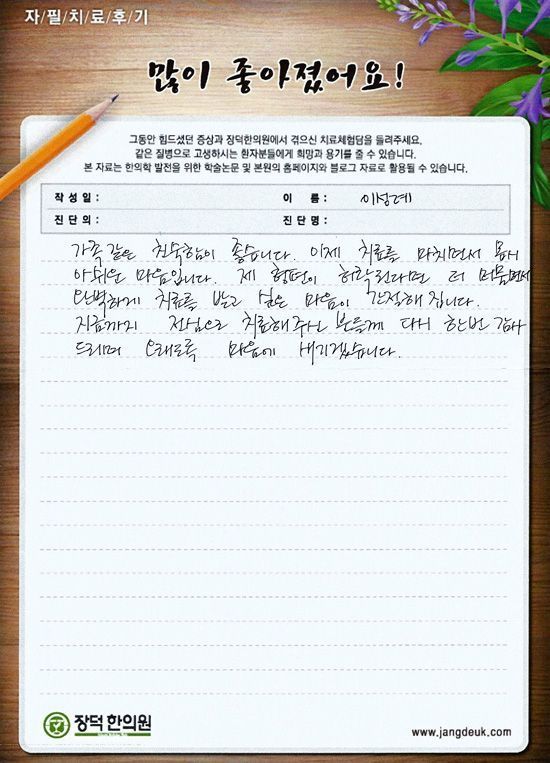 자/필/치/료/후/기
많이 좋아졌어요!
그동안 힘드셨던 증상과 장덕한의원에서 겪으신 치료체험담을 들려주세요.
같은 질병으로 고생하시는 환자분들에게 희망과 용기를 줄 수 있습니다.
본 자료는 한의학 발전을 위한 학술논문 및 본원의 홈페이지와 블로그 자료로 활용될 수 있습니다.
작 성 일 : 이 름 : 이성례
진 단 의 : 진 단 명 :
가족같은 친숙함이 좋습니다. 이제 치료를 마치면서 몹시
아쉬운 마음입니다. 제 형편이 허락된다면 더 머물면서
완벽하게 치료를 받고 싶은 마음이 간절해집니다.
지금까지 전심으로 치료해주신 분들께 다시 한번 감사
드리며 오래도록 마음에 새기겠습니다.
장덕한의원
www.jangdeuk.com